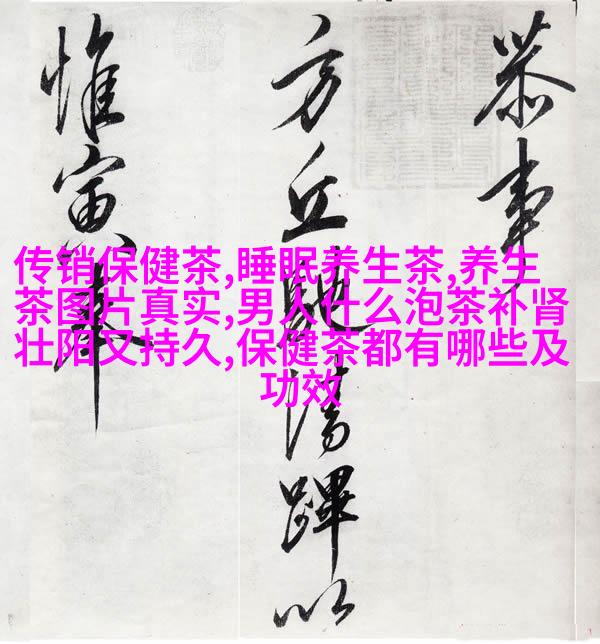 传销保健茶,睡眠养生茶,养生
茶图片真实,男人什么泡茶补肾
壮阳又持久,保健茶都有哪些及
功效
恭事
方丘馳清蹕以
惟寅奉